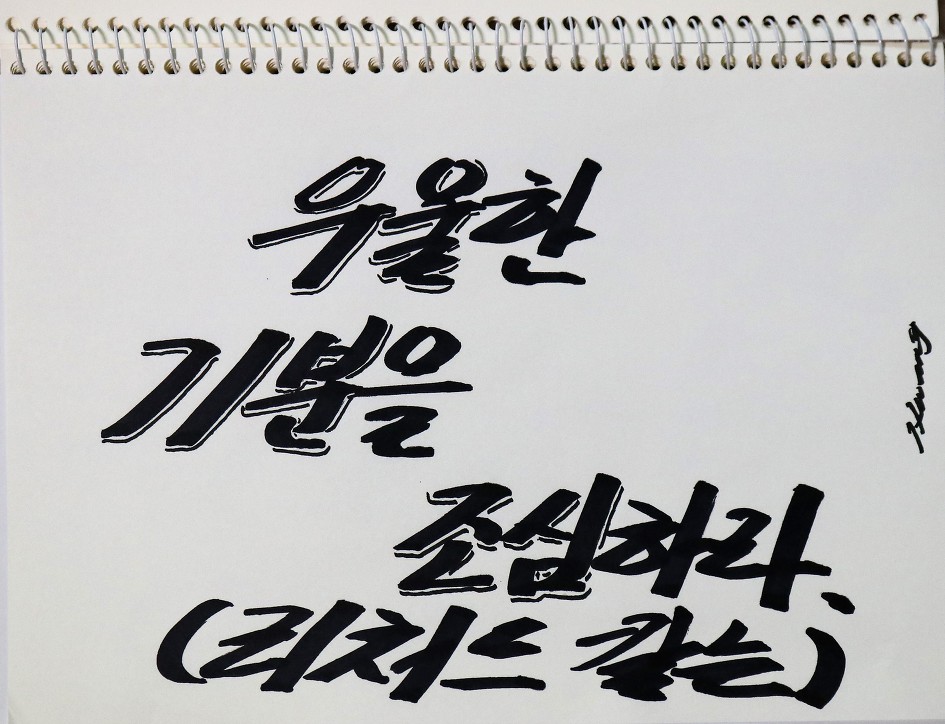 우울한
기분을
조심하라.
(리처드 칼슨)